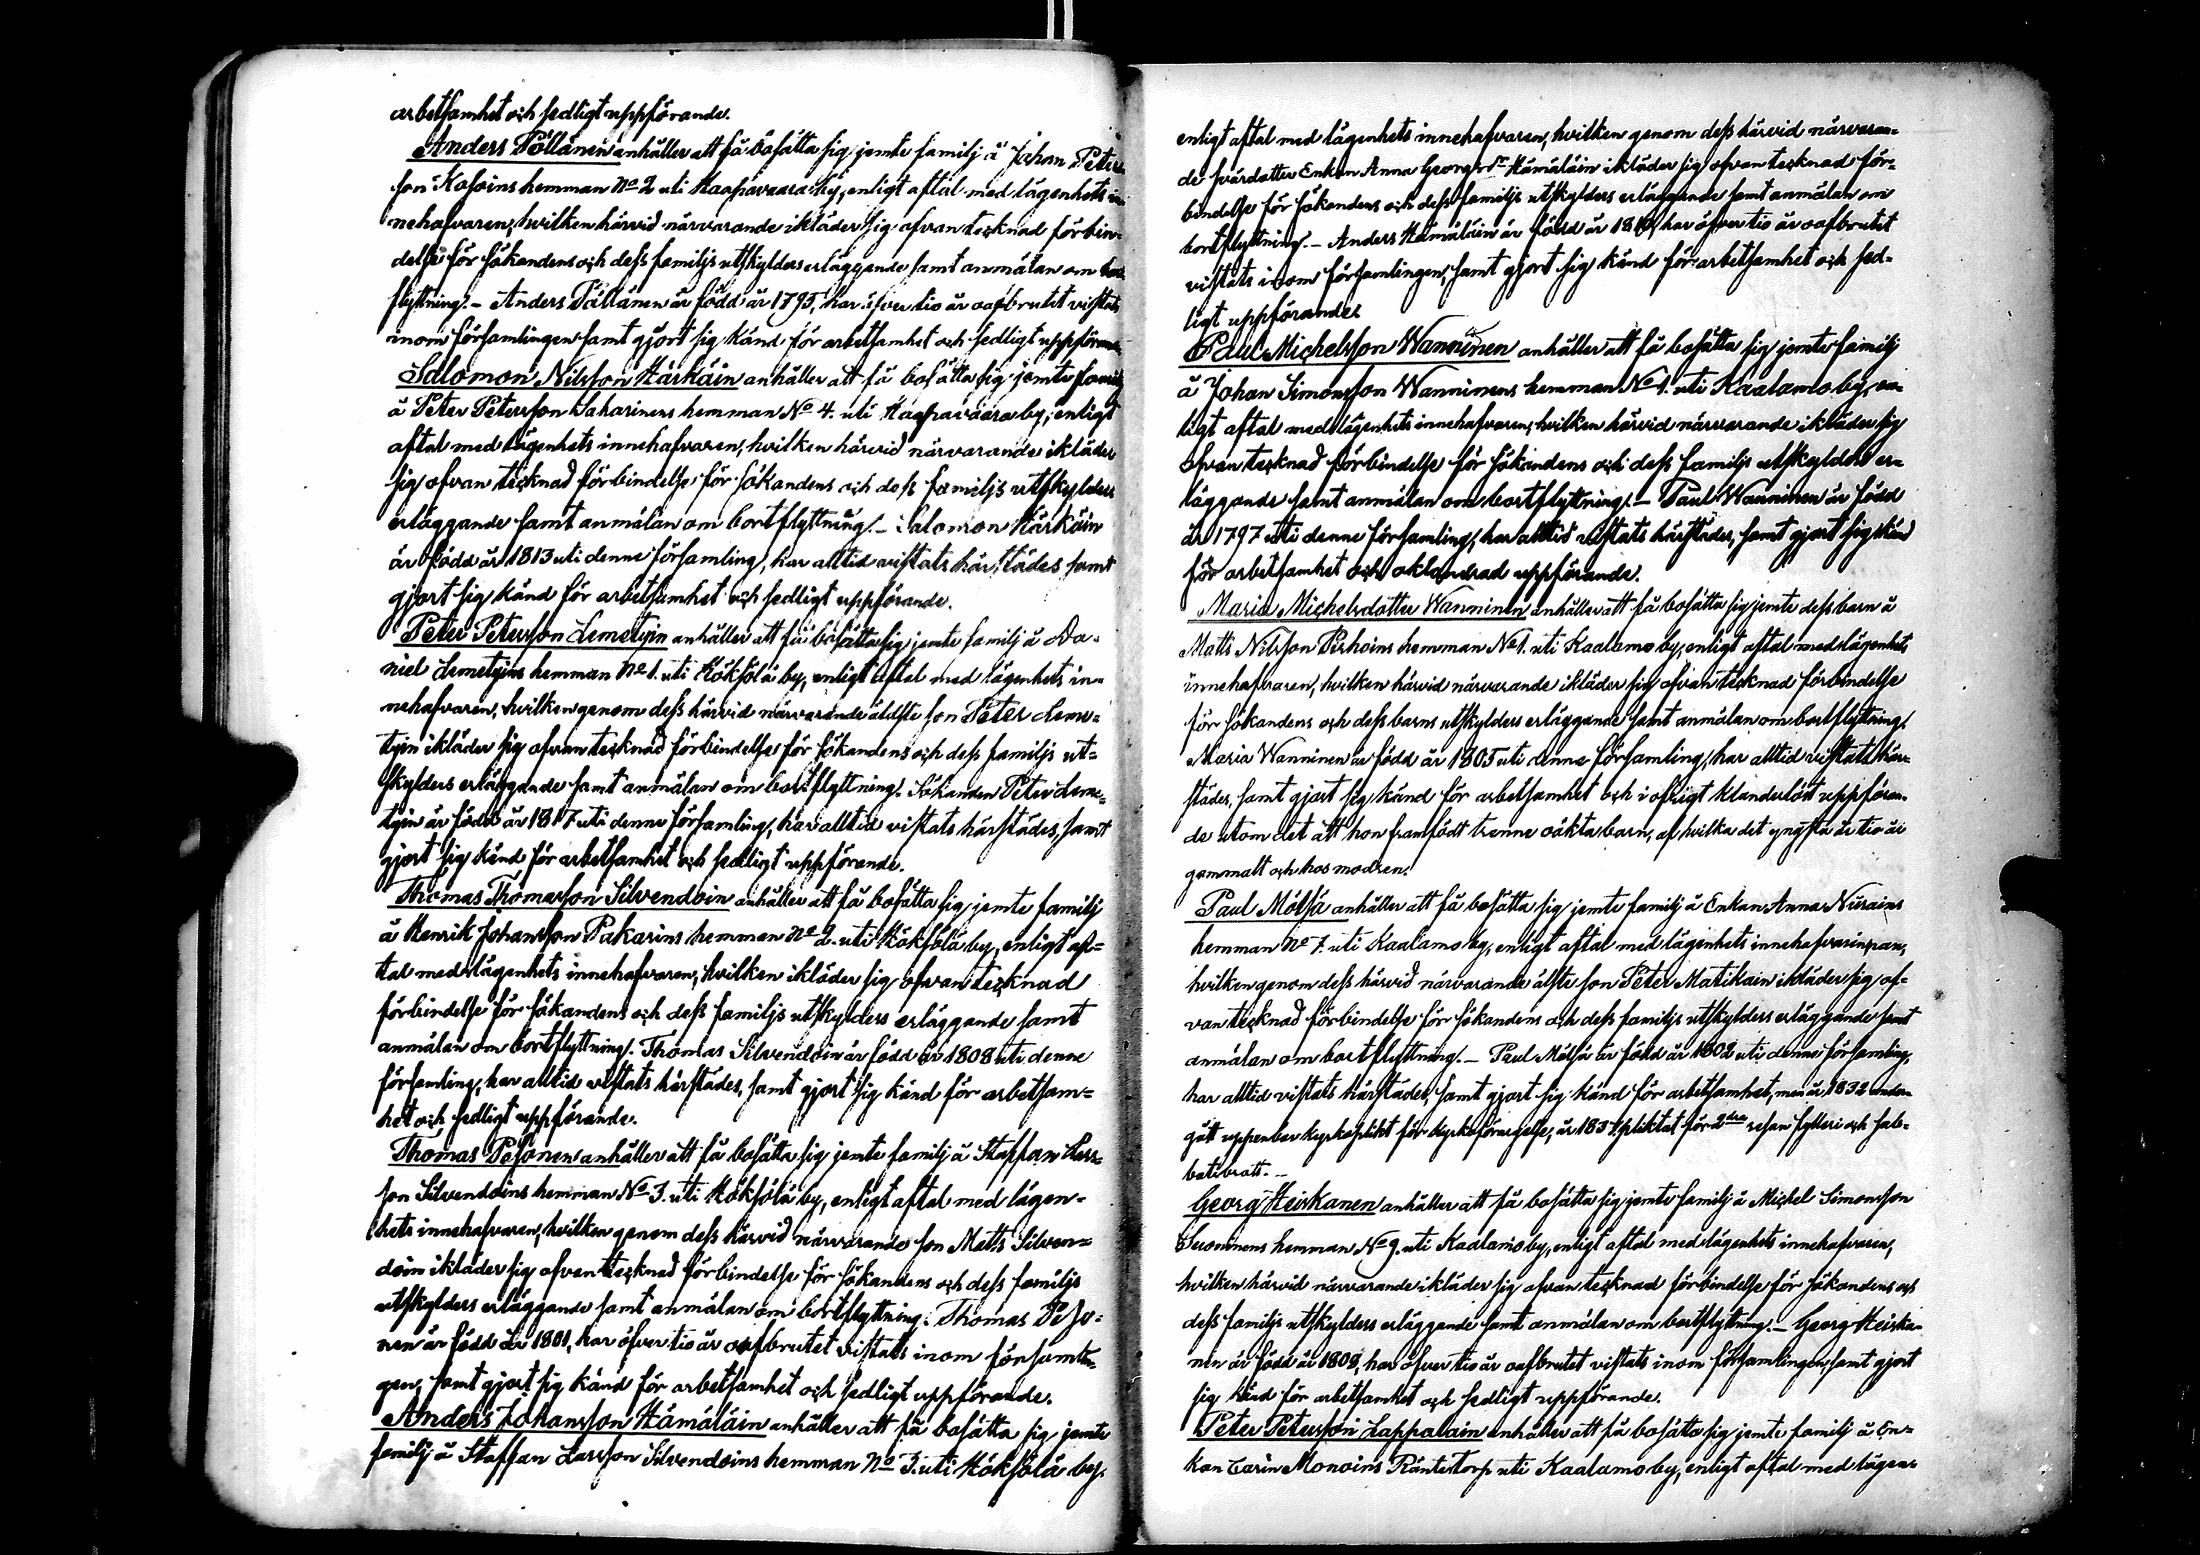 arbetsamhet och sedligt uppförande.
Anders Pöllänen anhåller att få bosätta sig jemte familj å Johan Peters-
son Kosoins hemman No 2 uti Haapavaara by, enligt aftal med lägenhets in-
nehafvaren, hvilken härvid närvarande ikläder sig ofvantecknad förbin-
delse för sökandens och dess familjs utskylders erläggande samt anmälan om bort-
flyttning. – Anders Pöllänen är född år 1795, har öfver tio år oafbrutet vistats
inom församlingen samt gjort sig känd för arbetsamhet och sedligt uppförande.
Salomon Nilsson Härkäin anhåller att få bosätta sig jemte familj
å Peter Petersson Saharinens hemman No 4. uti Haapavaara by, enligt
aftal med lägenhets innehafvaren, hvilken härvid närvarande ikläder
sig ofvantecknad förbindelse för sökandens och dess familjs utskylders
erläggande samt anmälan om bortflyttning. – Salomon Härkäin
är född år 1813 uti denne församling, har alltid vistats härstädes samt
gjort sig känd för arbetsamhet och sedligt uppförande.
Peter Petersson Lemetyin anhåller att få bosätta sig jemte familj å Da-
niel Lemetyins hemman No 1. uti Hökfölä by, enligt aftal med lägenhets in-
nehafvaren, hvilken genom dess härvid närvarande äldste son Peter Leme-
tyin ikläder sig ofvantecknad förbindelse för sökandens och dess familjs ut-
skylders erläggande samt anmälan om bortflyttning. Sökanden Peter Leme-
tyin är född år 1817 uti denne församling, har alltid vistats härstädes, samt
gjort sig känd för arbetsamhet och sedligt uppförande.
Thomas Thomasson Silvendoin anhåller att få bosätta sig jemte familj
å Henrik Johansson Pakarins hemman No 2. uti Hökfölä by, enligt af-
tal med lägenhets innehafvaren, hvilken ikläder sig ofvantecknad
förbindelse för sökandens och dess familjs utskylders erläggande samt
anmälan om bortflyttning. Thomas Silvendoin är född år 1808 uti denne
församling, har alltid vistats härstädes, samt gjort sig känd för arbetsam-
het och sedligt uppförande.
Thomas Pesonen anhåller att få bosätta sig jemte familj å Staffan Lars-
son Silvendoins hemman No 3. uti Hökfölä by, enligt aftal med lägen-
hets innehafvaren, hvilken genom dess härvid närvarande son Matts Silven-
doin ikläder sig ofvantecknad förbindelse för sökandens och dess familjs
utskylders erläggande samt anmälan om bortflyttning. Thomas Peso-
nen är född år 1801, har öfver tio år oafbrutet vistats inom församlin-
gen, samt gjort sig känd för arbetsamhet och sedligt uppförande.
Anders Johansson Hämäläin anhåller att få bosätta sig jemte
familj å Staffan Larsson Silvendoins hemman No 3. uti Hökfölä by,
enligt aftal med lägenhets innehafvaren, hvilken genom dess härvid närvaran-
de svärdotter Enkan Anna Georgsdr Hämäläin ikläder sig ofvantecknad för-
bindelse för sökandens och dess familjs utskylders erläggande samt anmälan om
bortflyttning. – Anders Hämäläin är född år har öfver tio år oafbrutet
vistats inom församlingen, samt gjort sig känd för arbetsamhet och sed-
ligt uppförande.
Paul Michelsson Wanninen anhåller att få bosätta sig jemte familj
å Johan Simonsson Wanninens hemman No 1. uti Kaalamo by, en-
ligt aftal med lägenhets innehafvaren, hvilken härvid närvarande ikläder sig
ofvantecknad förbindelse för sökandens och dess familjs utskylders er-
läggande samt anmälan om bortflyttning. – Paul Wanninen är född
år 1797 uti denne församling, har alltid vistats härstädes, samt gjort sig känd
för arbetsamhet och oklandrad uppförande.
Maria Michelsdotter Wanninen anhåller att få bosätta sig jemte dess barn å
Matts Nilsson Pirhoins hemman No 1. uti Kaalamo by, enligt aftal med lägenhets
innehafvaren, hvilken härvid närvarande ikläder sig ofvantecknad förbindelse
för sökandens och dess barns utskylders erläggande samt anmälan om bortflyttning.
Maria Wanninen är född år 1805 uti denne församling, har alltid vistats här-
städes, samt gjort sig känd för arbetsamhet och i öfrigt klanderlöst uppföran-
de utom det att hon framfödt trenne oäkta barn, af hvilka det yngsta är tio år
gammalt och hos modren.
Paul Mölsä anhåller att få bosätta sig jemte familj å Enkan Anna Nurains
hemman No 7. uti Kaalamo by, enligt aftal med lägenhets innehafvarinnan,
hvilken genom dess härvid närvarande älste son Peter Matikain ikläder sig of-
vantecknad förbindelse för sökandens och dess familjs utskylders erläggande samt
anmälan om bortflyttning. – Paul Mölsä är född år 1802 uti denne församling,
har alltid vistats härstädes, samt gjort sig känd för arbetsamhet, men år 1832 under-
gått uppenbar kyrkoplikt för kyrkoförargelse, år 1837 pliktat för 2dra resan fylleri och sab-
batsbrott. –
Georg Heiskanen anhåller att få bosätta sig jemte familj å Michel Simonsson
Suominens hemman No 9. uti Kaalamo by, enligt aftal med lägenhets innehafvaren,
hvilken härvid närvarande ikläder sig ofvantecknad förbindelse för sökandens och
dess familjs utskylders erläggande samt anmälan om bortflyttning. – Georg Heiska-
nen är född år 1808, har öfver tio år oafbrutet vistats inom församlingen samt gjort
sig känd för arbetsamhet och sedligt uppförande.
Peter Petersson Lappalain anhåller att få bosätta sig jemte familj å En-
kan Carin Monoins Räntetorp uti Kaalamo by, enligt aftal med lägen-